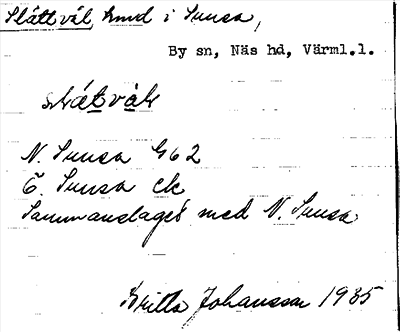 Slåttvål, hmd i Smnsa,
By sn, Näs hd, Värml.l.
slåtvål
N. Smnsa G62
Ö. Smnsa ck
Sammanslaget med N. Smnsa
Britta Johansson 1935